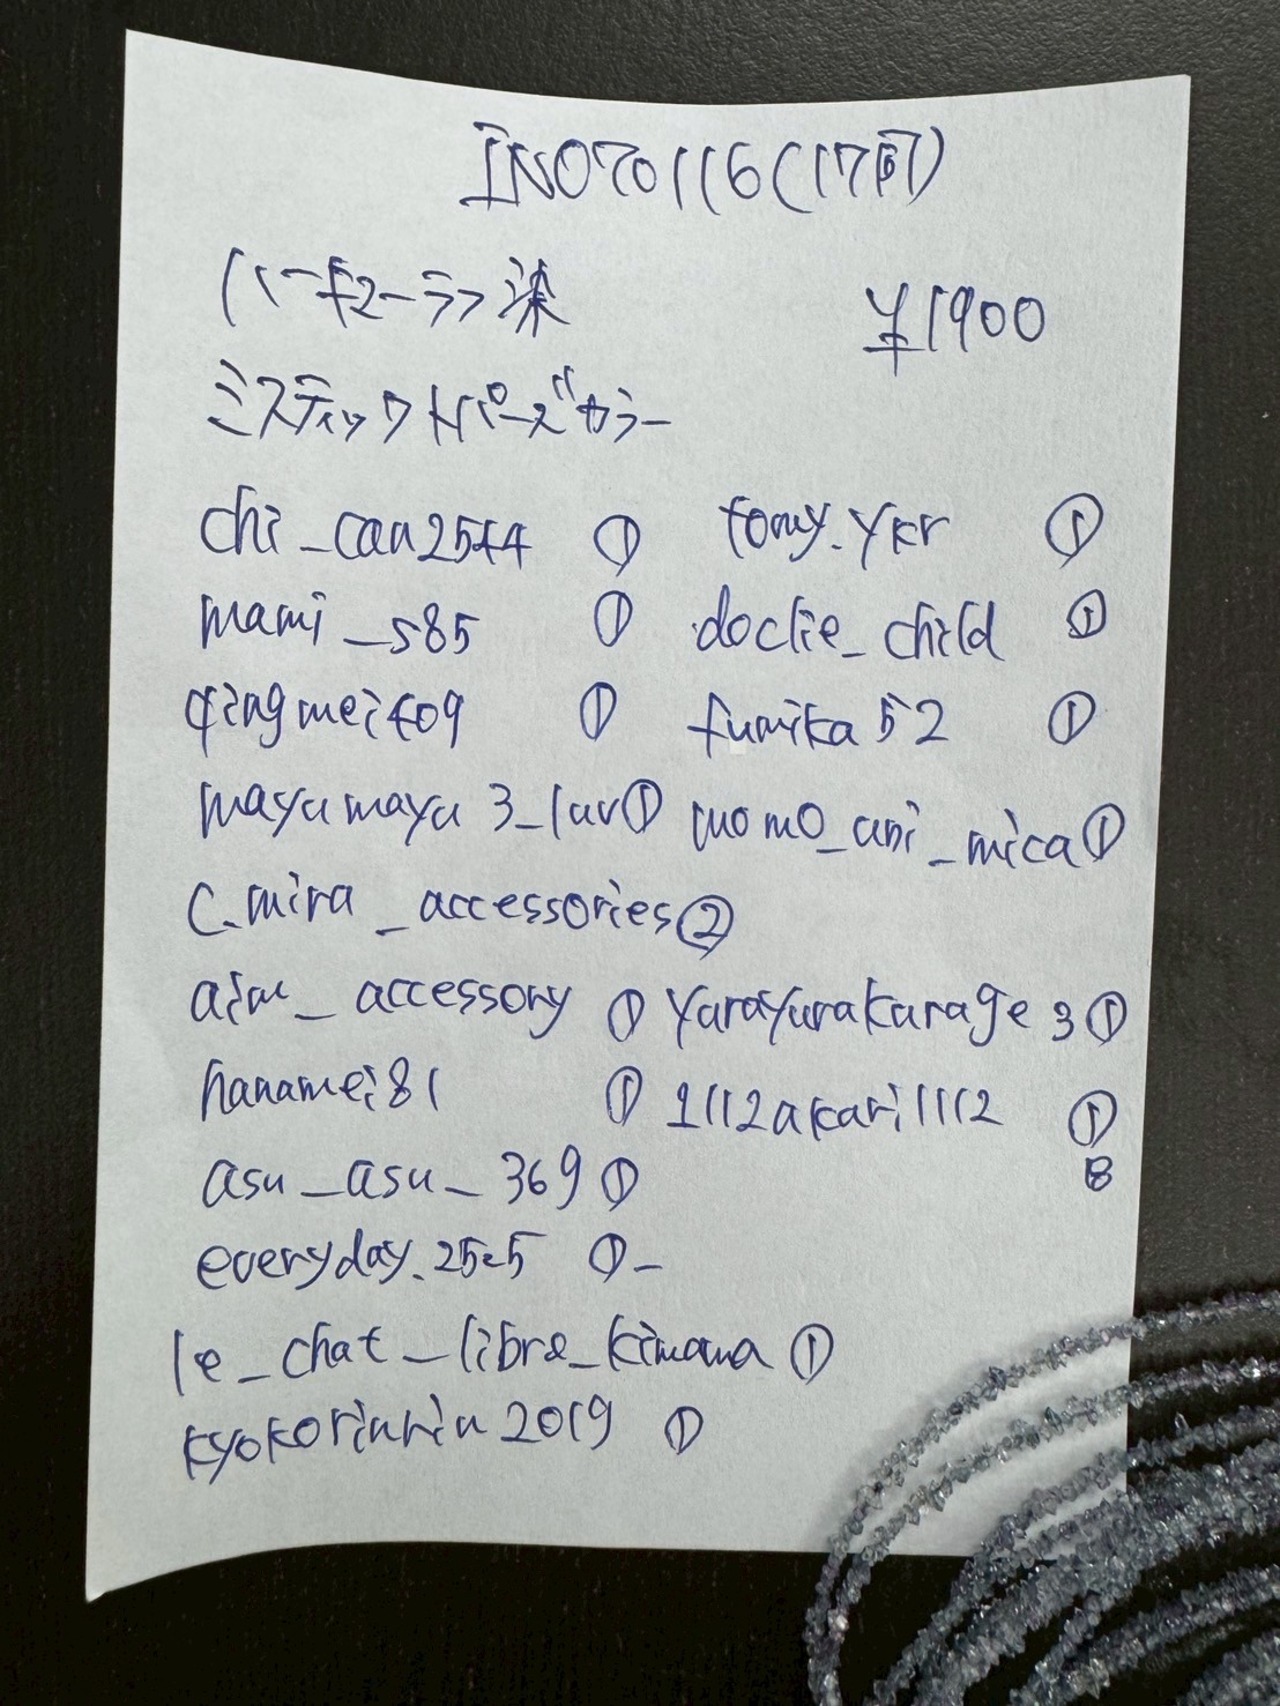 INO70116(17間)
ハーキマーラフ染
¥1900
ミスティックトパーズカラー
chi_can2544 ①
tomy.ykr ①
mami_s85 ①
doclie_child ①
qingmei409 ①
fumika52 ①
mayumayu3_luv①
momo_ani_mica①
c.mira_accessories②
aim_accessory ①
yurayurakarage3①
hanamei81 ①
1112akari1112 ①
asu_asu_369 ①
8
everyday.2525 ①-
le_chat_libre_kimama ①
kyokorinrin2019 ①